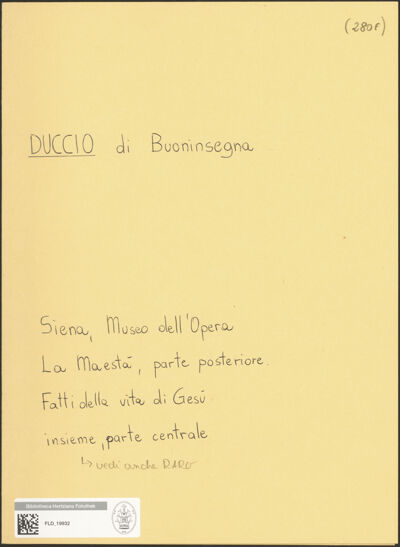 (280f)
DUCCIO di Buoninsegna
Siena, Museo dell'Opera
La Maestà, parte posteriore.
Fatti della vita di Gesù
insieme, parte centrale
↳ vedi anche RARO
Bibliotheca Hertziana Fotothek
FLD_19932